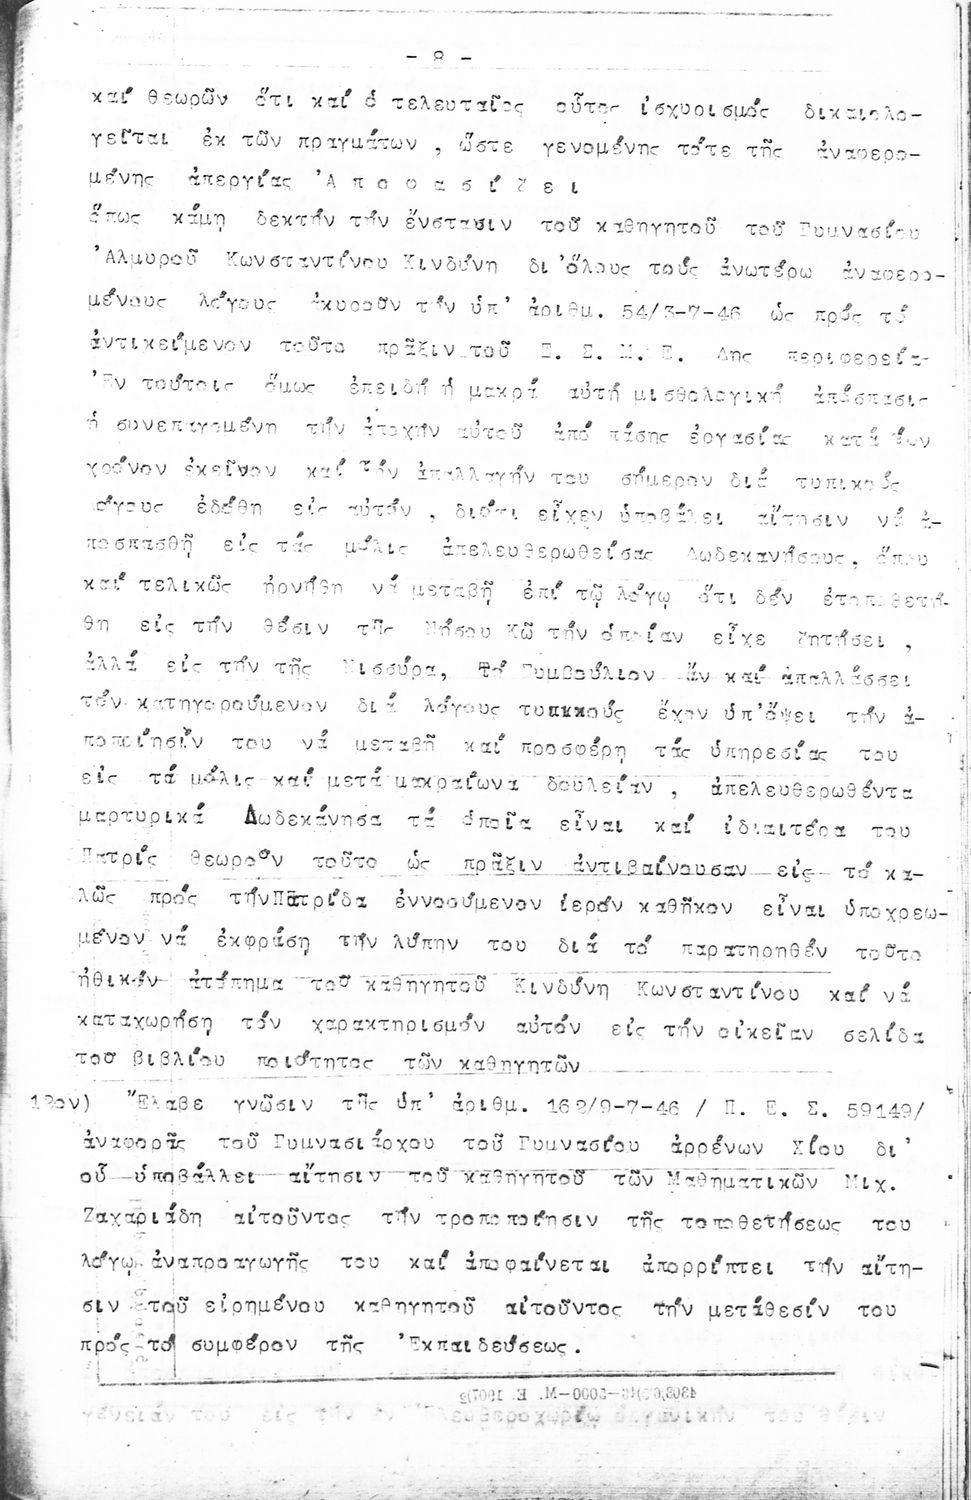 - 8 -
καί θεωρῶν ὅτι καί ὁ τελευταῖος οὗτος ἰσχυρισμός δικαιολο-
γεῖται ἐκ τῶν πραγμάτων , ὥστε γενομένης τότε τῆς ἀναφερο-
μένης ἀπεργίας 'Α π ο φ α σ ί ζ ε ι
ὅπως κάμῃ δεκτήν τήν ἔνστασιν τοῦ καθηγητοῦ τοῦ Γυμνασίου
'Αλμυροῦ Κωνσταντίνου Κινδύνη δι'ὅλους τούς ἀνωτέρω ἀναφερο-
μένους λόγους ἀκυροῦν τήν ὑπ' ἀριθμ. 54/3-7-46 ὡς πρός τό
ἀντικείμενον τοῦτο πρᾶξιν τοῦ Π. Σ. Μ. Ε. Δης περιφερείας
'Εν τούτοις ὅμως ἐπειδή ἡ μακρά αὐτή μισθολογική ἀπόσπασις
ἡ συνεπαγομένη τήν ἀποχήν αὐτοῦ ἀπό πάσης ἐργασίας κατά τόν
χρόνον ἐκεῖνον καί τήν ἀπαλλαγήν του σήμερον διά τυπικούς
λόγους ἐδόθη εἰς αὐτόν , διότι εἶχεν ὑποβάλει αἴτησιν νά ἀ-
ποσπασθῇ εἰς τάς μόλις ἀπελευθερωθείσας Δωδεκανήσους, ὅπου
καί τελικῶς ἠρνήθη νά μεταβῇ ἐπί τῷ λόγῳ ὅτι δέν ἐτοποθετή-
θη εἰς τήν θέσιν τῆς Νήσου Κῶ τήν ὁποίαν εἶχε ζητήσει ,
ἀλλά εἰς τήν τῆς Νισσύρα, Τό Συμβούλιον ἄν καί ἀπαλλάσσει
τόν κατηγορούμενον διά λόγους τυπικούς ἔχον ὑπ'ὄψει τήν ἀ-
ποποίησίν του νά μεταβῇ καί προσφέρῃ τάς ὑπηρεσίας του
εἰς τά μόλις καί μετά μακραίωνα δουλείαν , ἀπελευθερωθέντα
μαρτυρικά Δωδεκάνησα τά ὁποῖα εἶναι καί ἰδιαιτέρα του
Πατρίς θεωροῦν τοῦτο ὡς πρᾶξιν ἀντιβαίνουσαν εἰς τό κα-
λῶς πρός τήνΠατρίδα ἐννοούμενον ἱερόν καθῆκον εἶναι ὑποχρεω-
μένον νά ἐκφράσῃ τήν λύπην του διά τό παρατηρηθέν τοῦτο
ἠθικόν ἀτόπημα τοῦ καθηγητοῦ Κινδύνη Κωνσταντίνου καί νά
καταχωρήσῃ τόν χαρακτηρισμόν αὐτόν εἰς τήν οἰκείαν σελίδα
τοῦ βιβλίου ποιότητος τῶν καθηγητῶν
12ον) "Ελαβε γνῶσιν τῆς ὑπ' ἀριθμ. 162/9-7-46 / Π. Ε. Σ. 59149/
ἀναφορᾶς τοῦ Γυμνασιάρχου τοῦ Γυμνασίου ἀρρένων Χίου δι'
οὗ ὑποβάλλει αἴτησιν τοῦ καθηγητοῦ τῶν Μαθηματικῶν Μιχ.
Ζαχαριάδη αἰτοῦντος τήν τροποποίησιν τῆς τοποθετήσεως του
λόγῳ ἀναπροαγωγῆς του καί ἀποφαίνεται ἀπορρίπτει τήν αἴτη-
σιν τοῦ εἰρημένου καθηγητοῦ αἰτοῦντος τήν μετάθεσίν του
πρός τό συμφέρον τῆς 'Εκπαιδεύσεως.